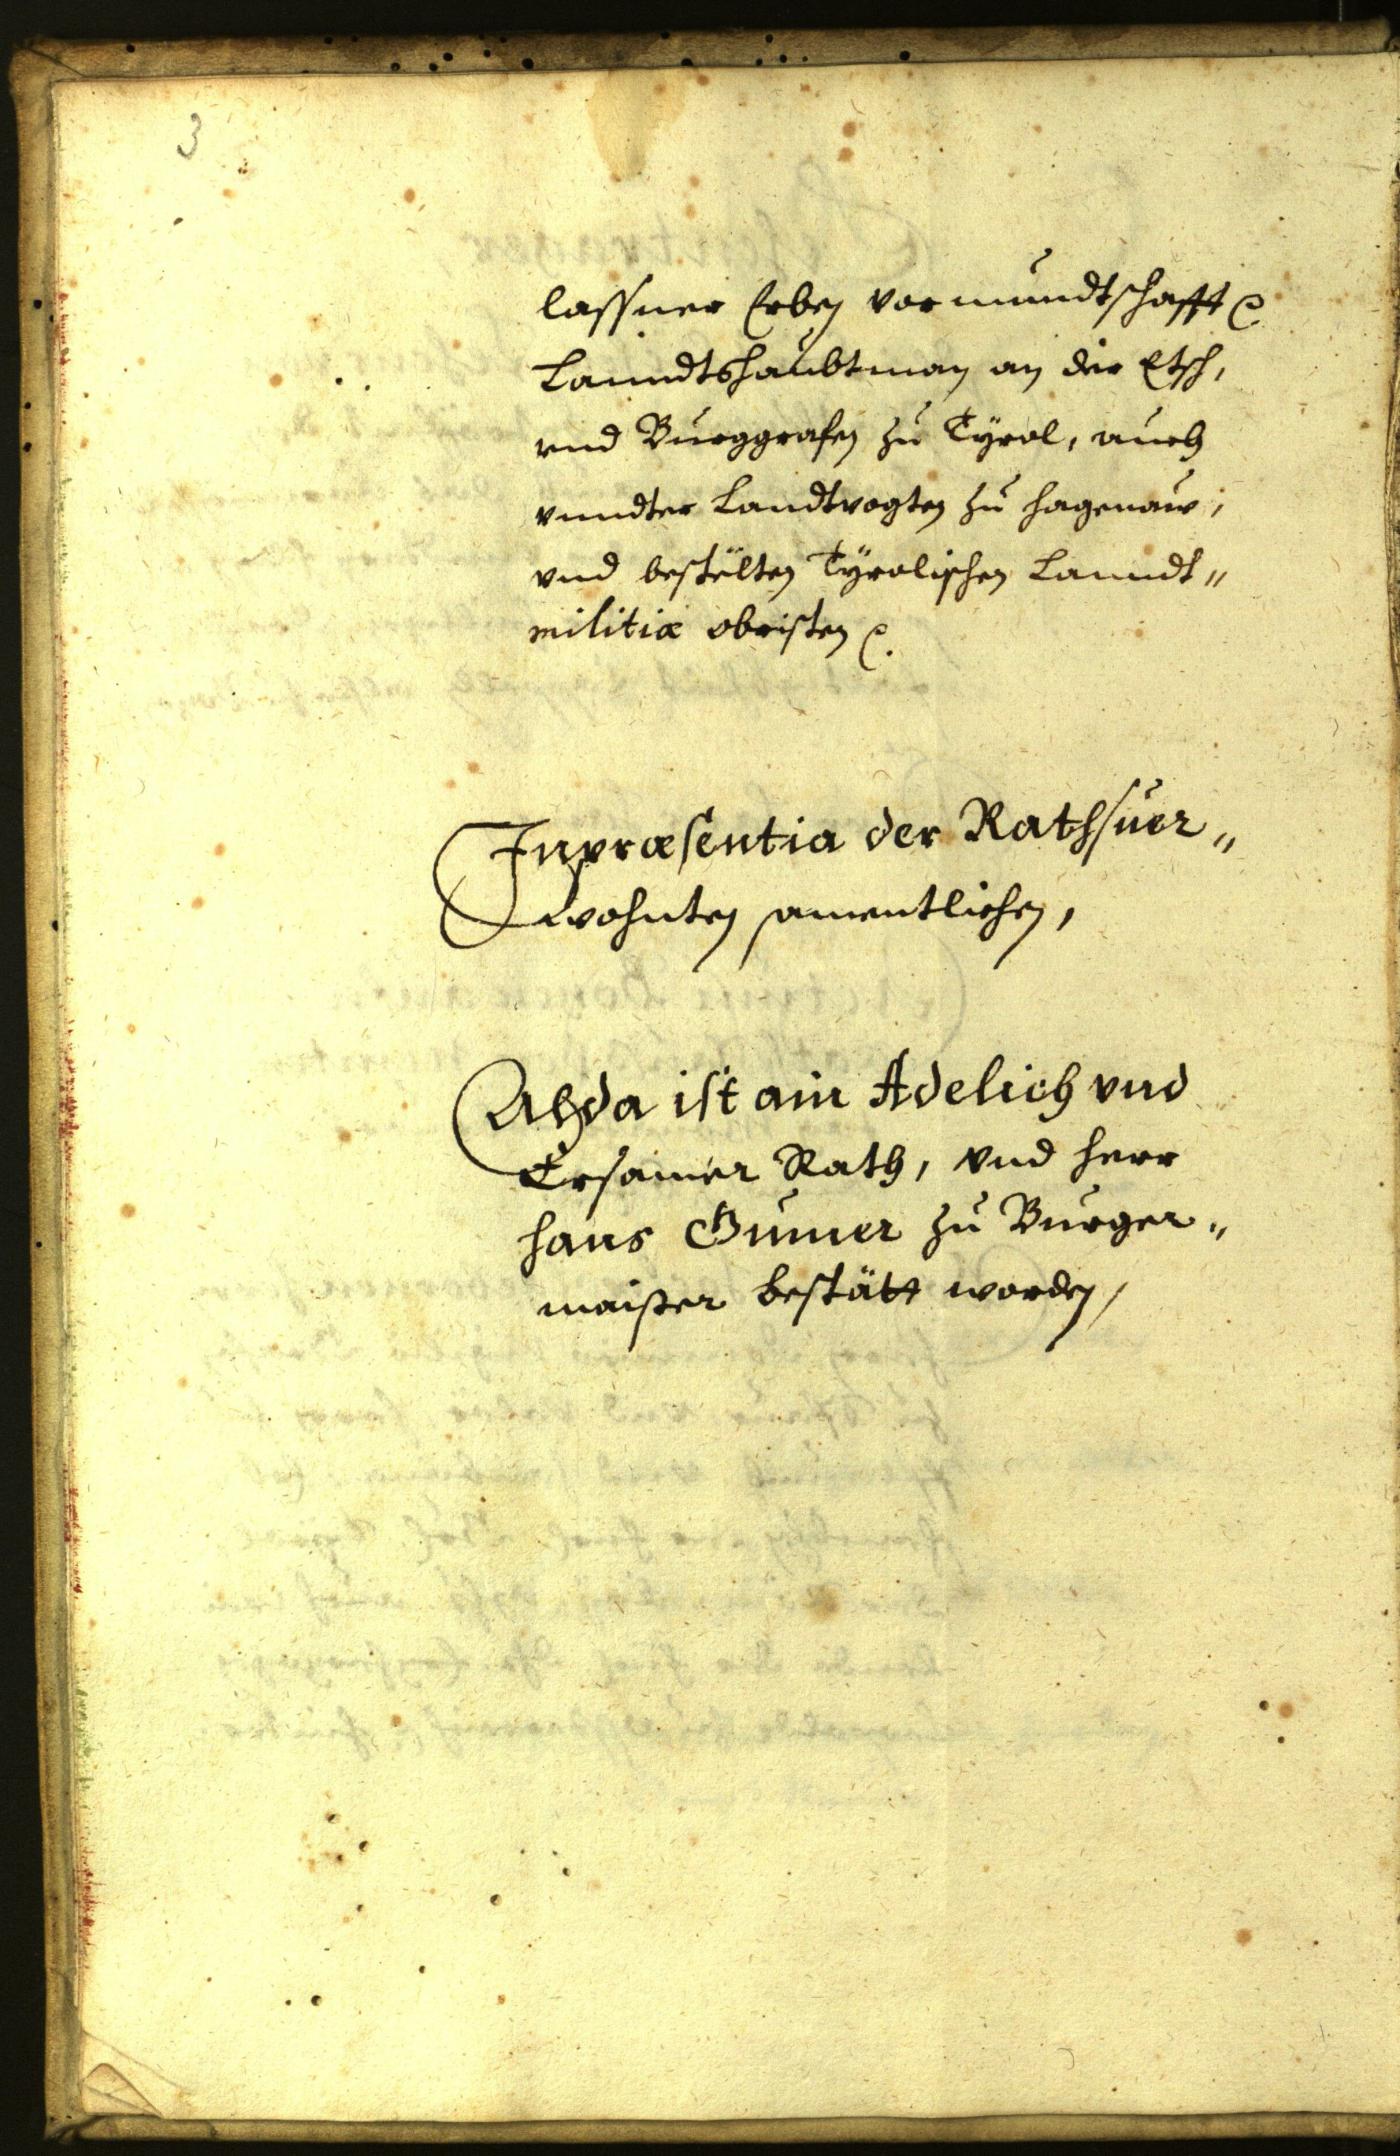 3
lassner Erben vormundtschafft etc.
Lanndtshaubtman an der Etsch,
vnd Burggrafen zu Tÿrol, auch
vnndter Landtvogten zu Hagenaw,
vnd bestelten Tÿrolischen Lanndt„
militiæ obristen etc.
In præsentia der Rathsuer„
wohnten samentlichen,
Alda ist ain Adelich vnd
Ersamer Rath, vnd Herr
Hans Gumer zu Burger„
maister bestätt worden,